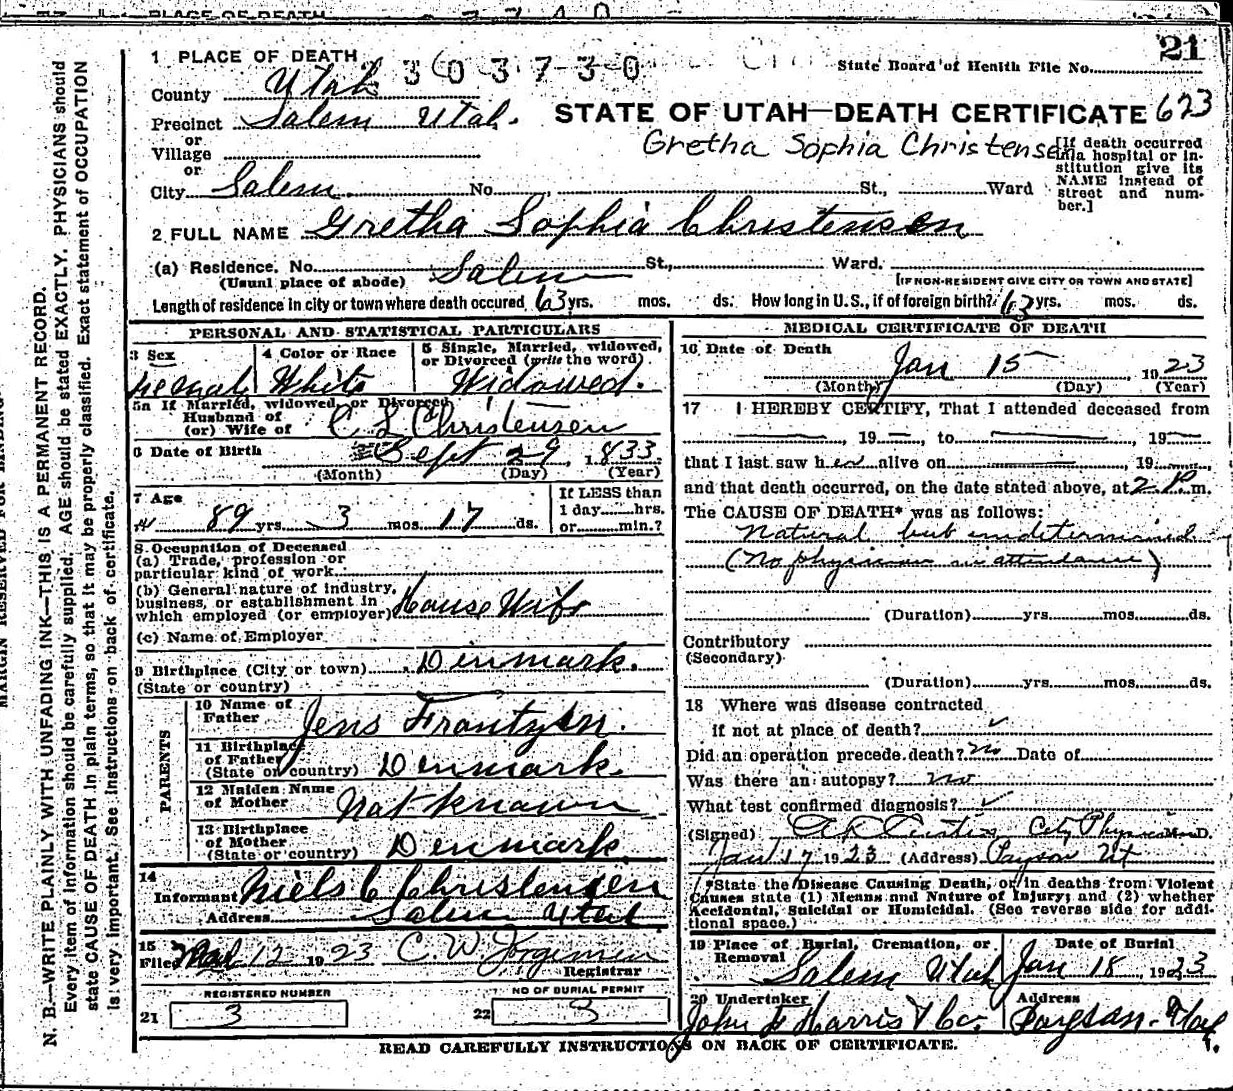 PLACE OF DEATH
21
1 PLACE OF DEATH
303730
State Board of Health File No.
County Utah
STATE OF UTAH—DEATH CERTIFICATE 623
Precinct Salem Utah.
or
Village
or
Gretha Sophia Christensen
[If death occurred in a hospital or institution give its NAME instead of street and number.]
City Salem No. , St., Ward
2 FULL NAME Gretha Sophia Christensen
(a) Residence. No. Salem St., Ward.
(Usual place of abode) [IF NON-RESIDENT GIVE CITY OR TOWN AND STATE]
Length of residence in city or town where death occured 63 yrs. mos. ds. How long in U.S., if of foreign birth? 63 yrs. mos. ds.
PERSONAL AND STATISTICAL PARTICULARS
3 Sex
4 Color or Race White
5 Single, Married, widowed, or Divorced (write the word) Widowed.
5a If Married, widowed, or Divorced
Husband of
(or) Wife of C L Christensen
6 Date of Birth Sept 29, 1833
(Month) (Day) (Year)
7 Age
89 yrs. 3 mos. 17 ds.
If LESS than
1 day hrs.
or min.?
8 Occupation of Deceased
(a) Trade, profession or
particular kind of work
(b) General nature of industry,
business, or establishment in
which employed (or employer) House Wife
(c) Name of Employer
9 Birthplace (City or town) Denmark.
(State or country)
PARENTS
10 Name of
Father Jens Frantzen.
11 Birthplace
of Father
(State or country) Denmark.
12 Maiden Name
of Mother Not known
13 Birthplace
of Mother
(State or country) Denmark
14
Informant Niels C Christensen
Address Salem Utah
15
Filed 12 1923 C. W. Jorgensen
Registrar
REGISTERED NUMBER
21 3
NO OF BURIAL PERMIT
22 3
MEDICAL CERTIFICATE OF DEATH
16 Date of Death Jan 15 1923
(Month) (Day) (Year)
17 I HEREBY CERTIFY, That I attended deceased from
, 19 , to , 19
that I last saw her alive on , 19
and that death occurred, on the date stated above, at 2 P. m.
The CAUSE OF DEATH* was as follows:
Natural but undetermined
(No physician in attendance)
(Duration) yrs. mos. ds.
Contributory
(Secondary)
(Duration) yrs. mos. ds.
18 Where was disease contracted
if not at place of death? ✓
Did an operation precede death? no Date of
Was there an autopsy? no
What test confirmed diagnosis? ✓
(Signed) Curtis City Physician M.D.
Jan 17 1923 (Address) Payson Ut
*State the Disease Causing Death, or in deaths from Violent
Causes state (1) Means and Nature of Injury; and (2) whether
Accidental, Suicidal or Homicidal. (See reverse side for addi-
tional space.)
19 Place of Burial, Cremation, or
Removal
Salem Utah
Date of Burial
Jan 18, 1923
20 Undertaker
John F Harris & Co.
Address
Payson - Utah.
READ CAREFULLY INSTRUCTIONS ON BACK OF CERTIFICATE.
MARGIN RESERVED FOR BINDING
N. B.—WRITE PLAINLY WITH UNFADING INK—THIS IS A PERMANENT RECORD.
Every item of information should be carefully supplied. AGE should be stated EXACTLY. PHYSICIANS should
state CAUSE OF DEATH in plain terms, so that it may be properly classified. Exact statement of OCCUPATION
is very important. See instructions on back of certificate.